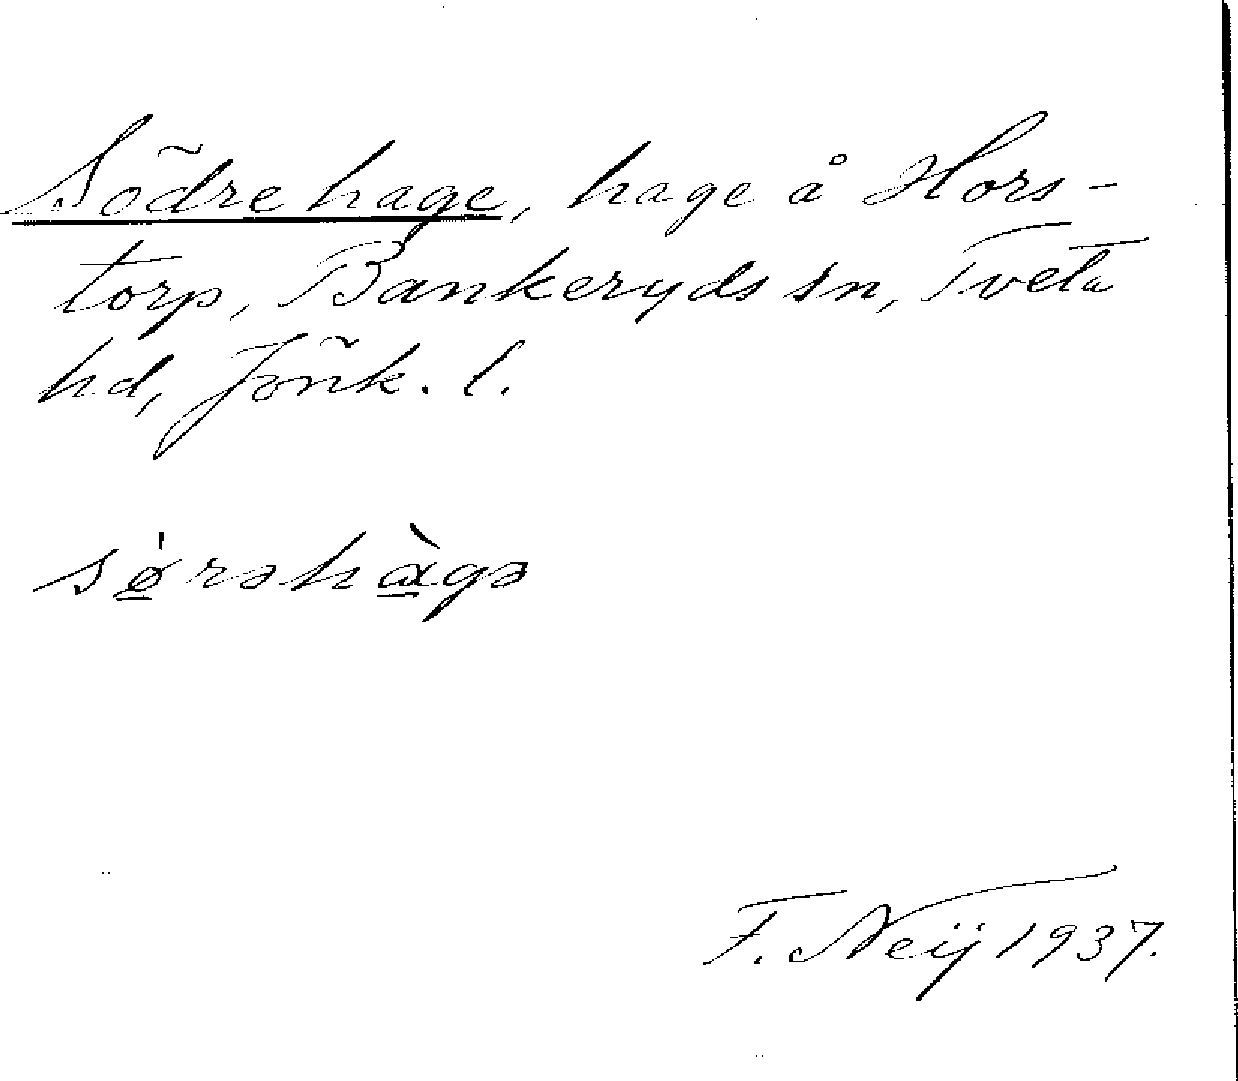 Södre hage, hage å Hors-
torp, Bankeryds sn, Tveta
hd, Jönk. l.
sø̀rəhàgə
F. Neij 1937.